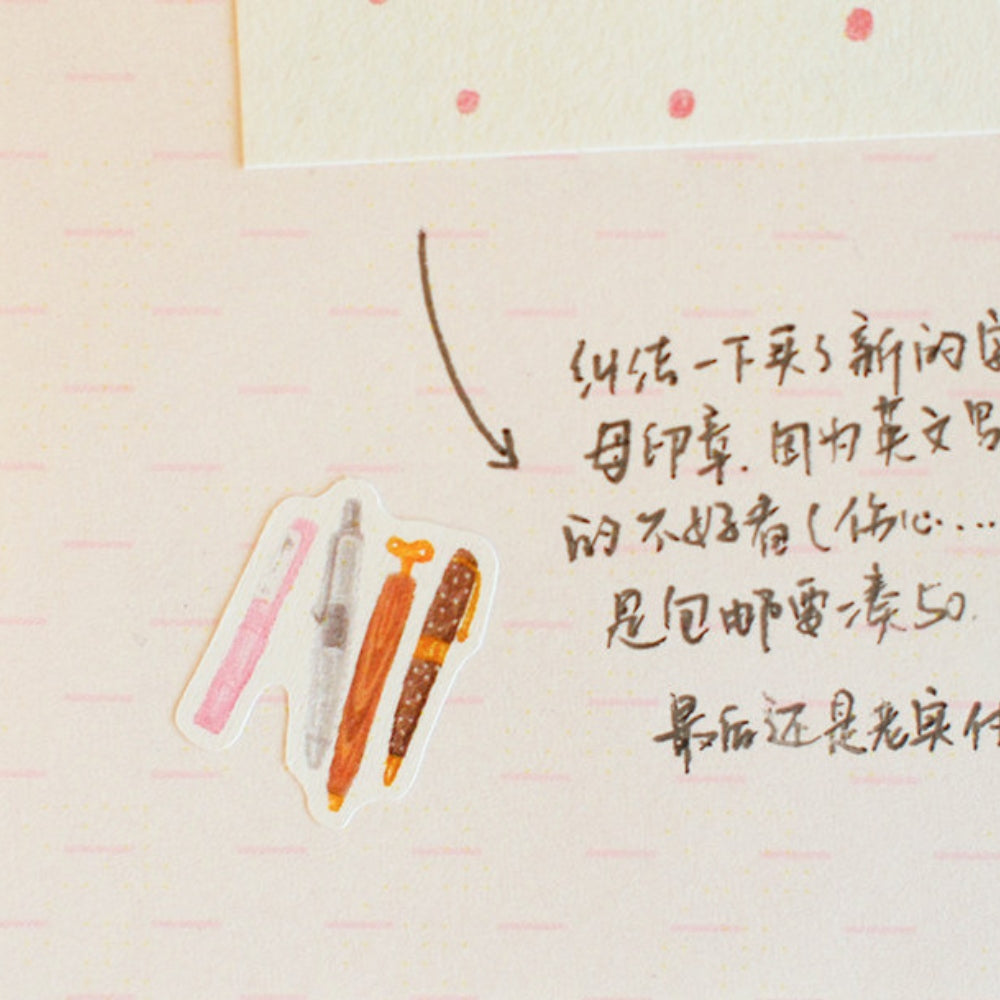 纠结一下买了新的字
母印章.因为英文写
的不好看(伤心....
是包邮要凑50.
最后还是老实